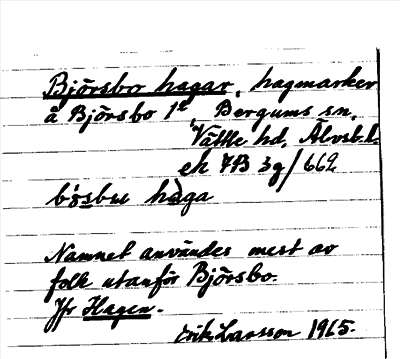 Björsbo hagar, hagmarker
å Björsbo 1²
Bergums sn,
Vättle hd, Älvsb.l.
ek 7B 3g/662
bösbu hàga
Namnet användes mest av
folk utanför Björsbo.
Jfr Hagen.
Erik Larsson 1965.